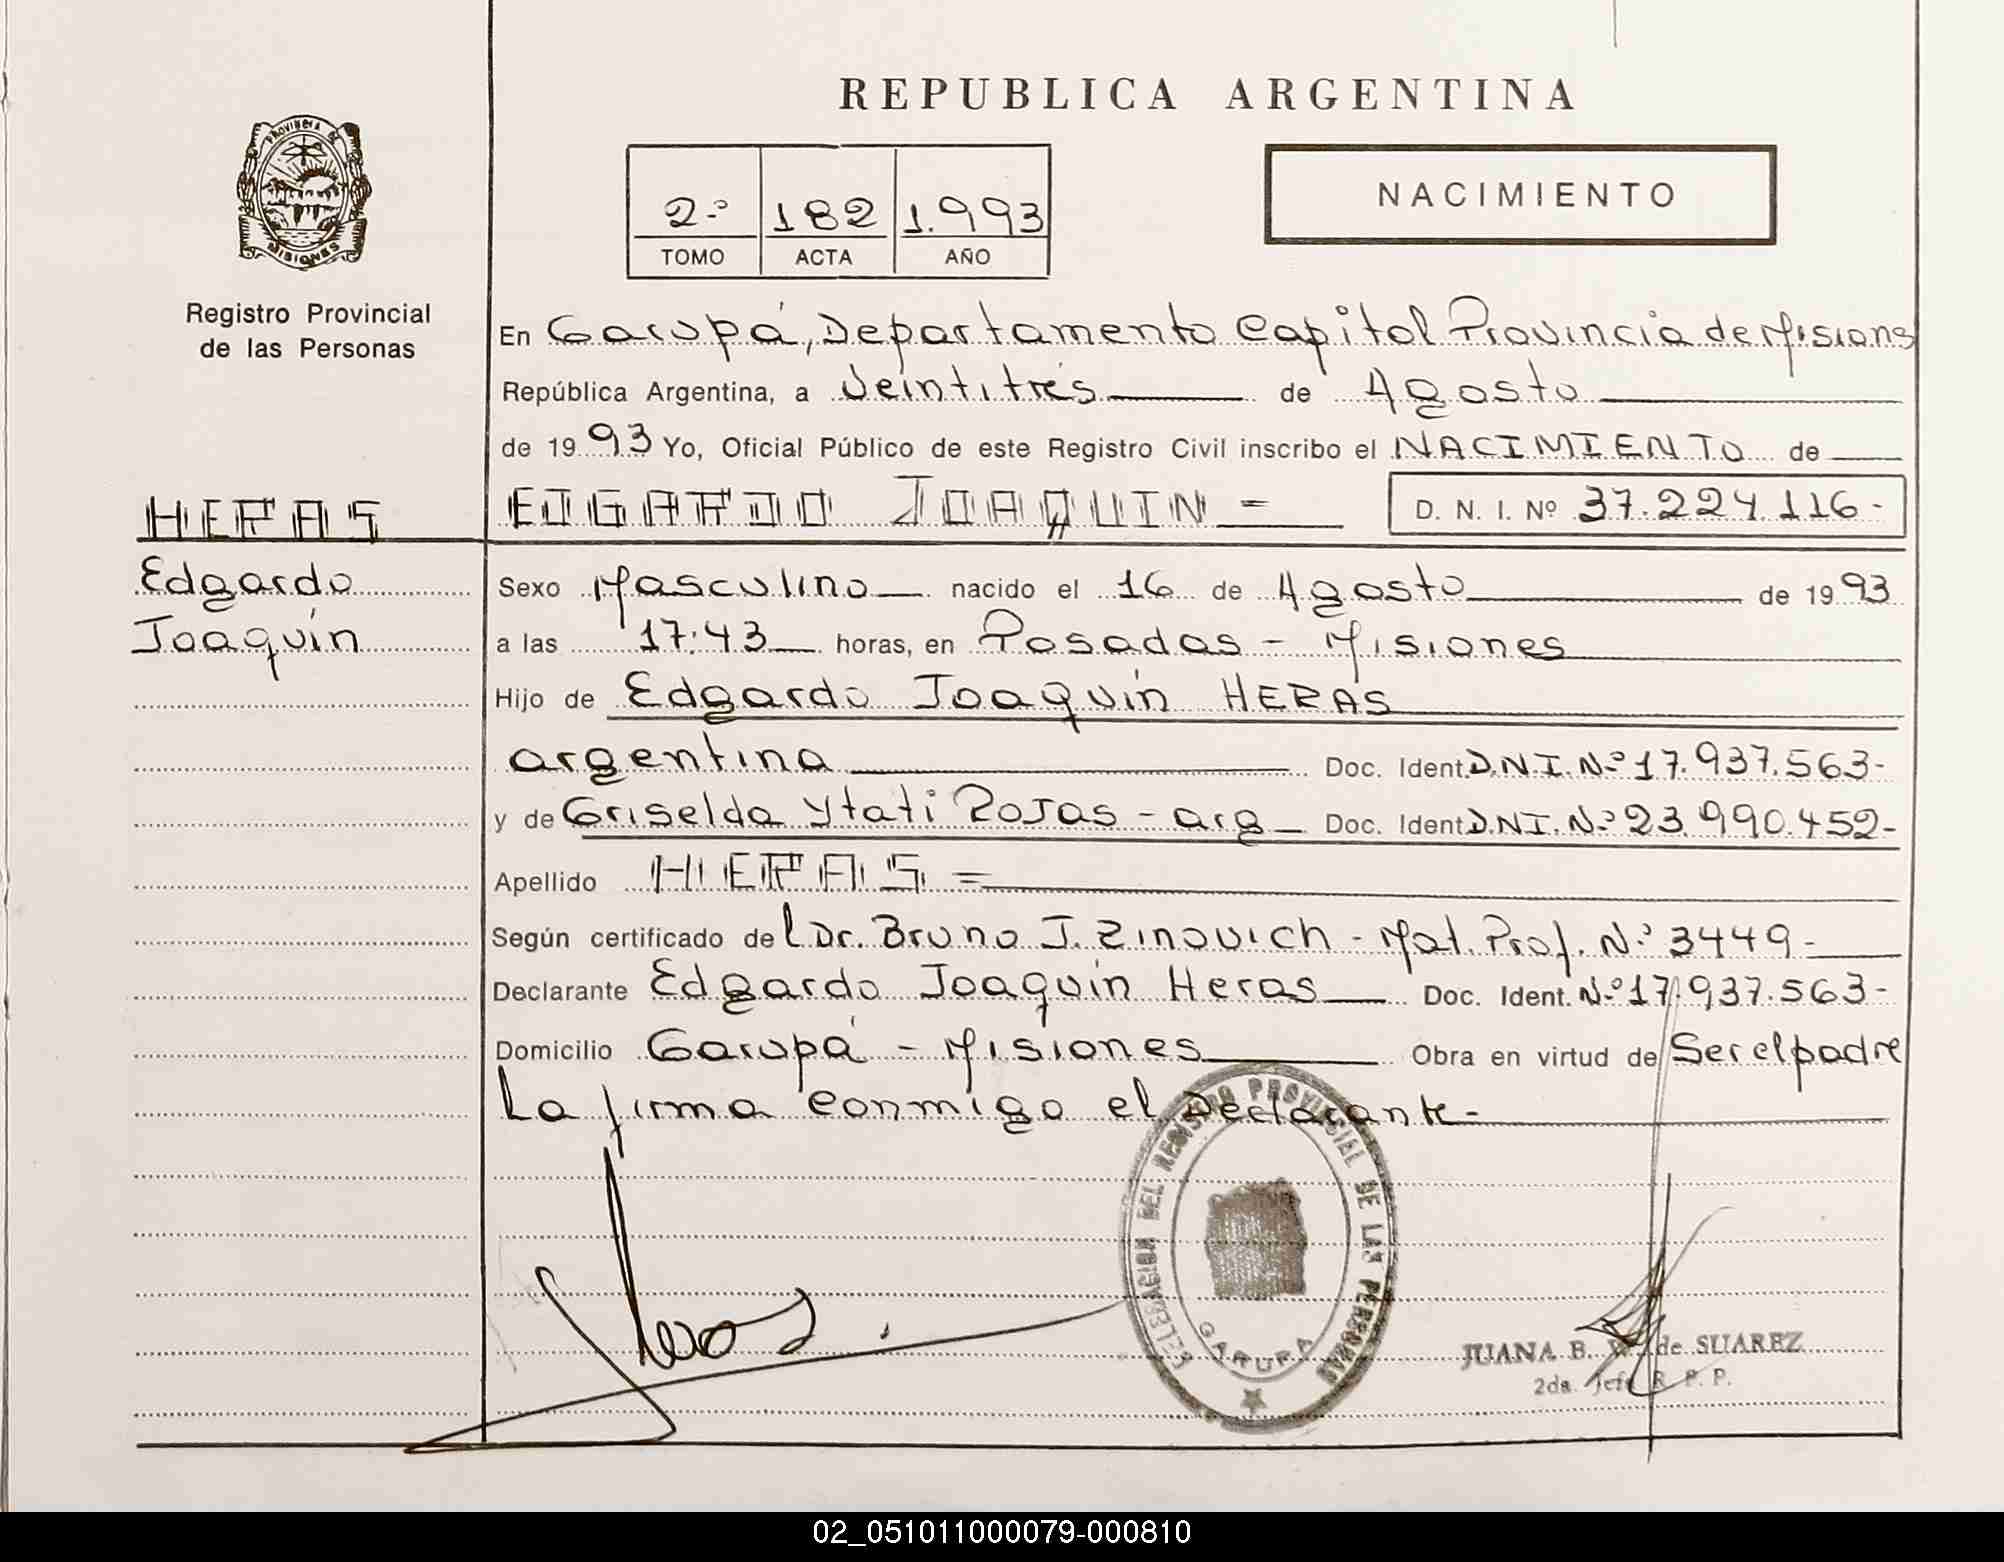 REPUBLICA ARGENTINA
PROVINCIA DE
MISIONES
2º 182 1.993
TOMO ACTA AÑO
NACIMIENTO
Registro Provincial
de las Personas
En Garupá, Departamento Capital Provincia de Misiones
República Argentina, a Veintitrés de Agosto
de 1993 Yo, Oficial Público de este Registro Civil inscribo el NACIMIENTO de
HERAS EDGARDO JOAQUIN = D. N. I. Nº 37.224.116-
Edgardo
Joaquín
Sexo Masculino nacido el 16 de Agosto de 1993
a las 17:43 horas, en Posadas - Misiones
Hijo de Edgardo Joaquín HERAS
argentina Doc. Ident. D.N.I. Nº 17.937.563-
y de Griselda Ytati Rojas - arg Doc. Ident D.N.I. Nº 23.990.452-
Apellido HERAS =
Según certificado de l Dr. Bruno J. Zinovich - Mat. Prof. Nº 3449-
Declarante Edgardo Joaquín Heras Doc. Ident. Nº 17.937.563-
Domicilio Garupá - Misiones Obra en virtud de Ser el padre
La firma conmigo el Declarante-
DELEGACION DEL REGISTRO PROVINCIAL DE LAS PERSONAS
GARUPA
JUANA B. de SUAREZ
2da. Jefe R. P. P.
02_051011000079-000810